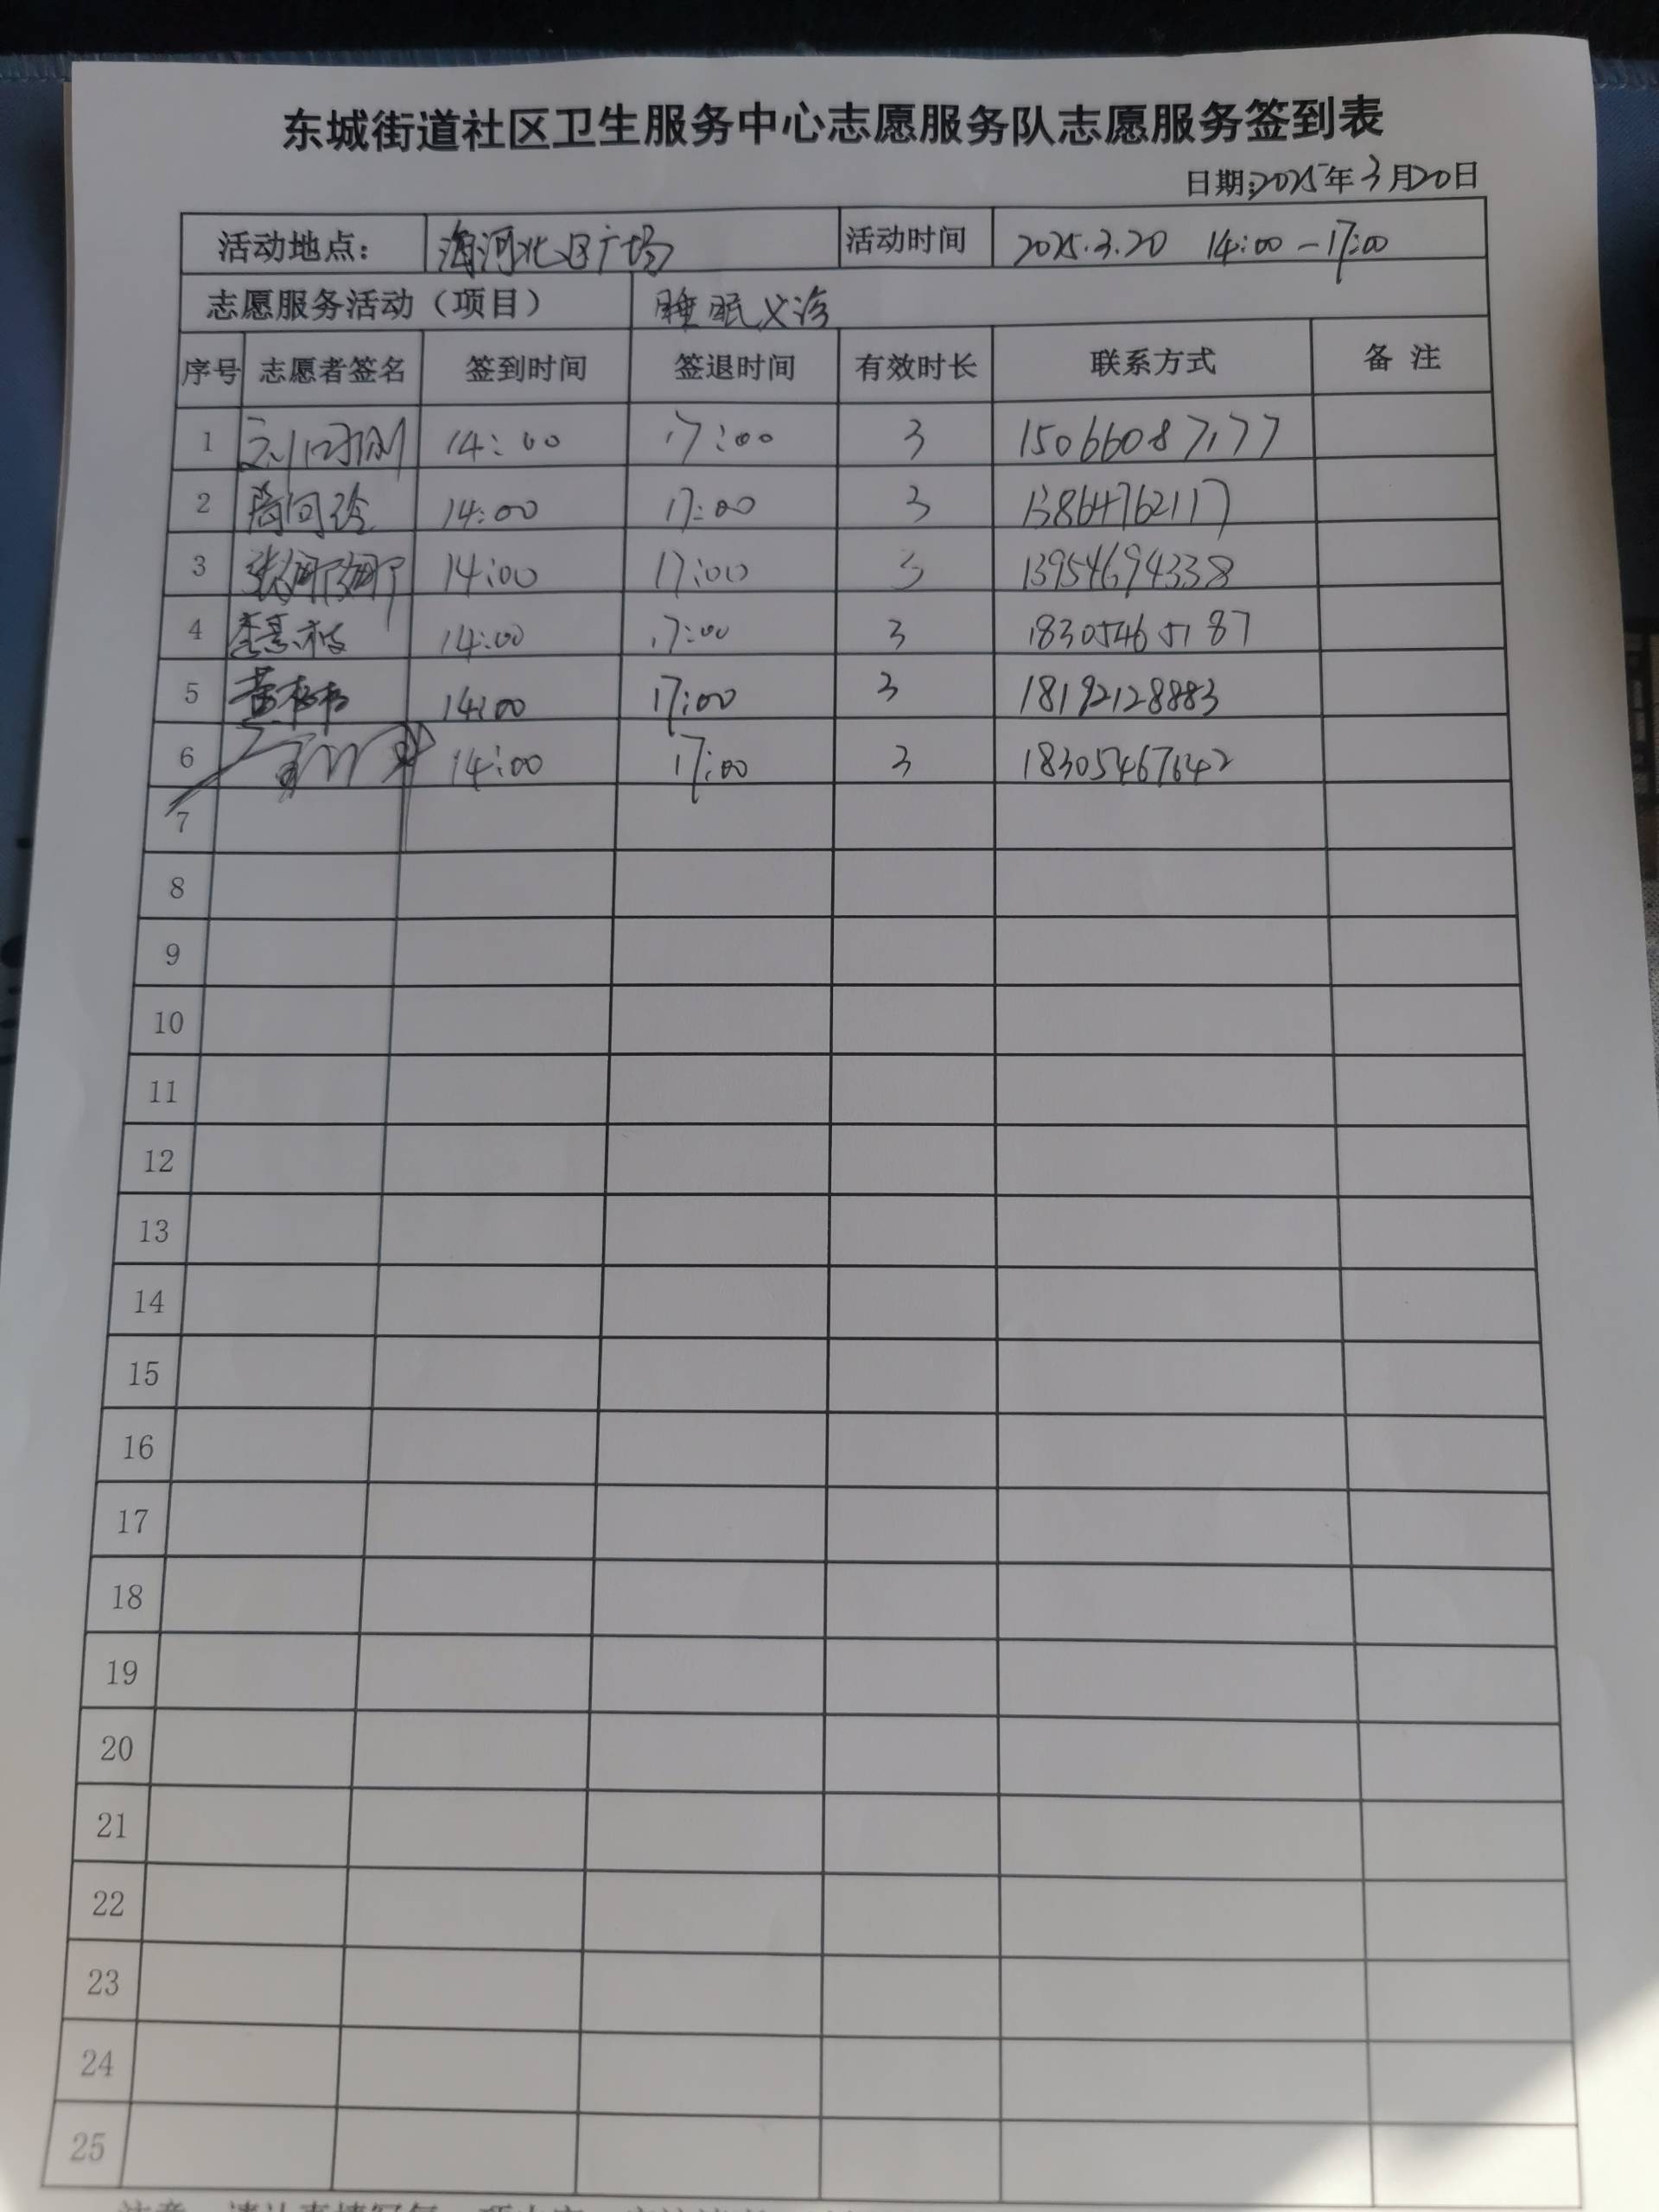 东城街道社区卫生服务中心志愿服务队志愿服务签到表
日期:2025年3月20日
活动地点: 海河北区广场 活动时间 2025.3.20 14:00-17:00
志愿服务活动（项目） 睡眠义诊
序号 志愿者签名 签到时间 签退时间 有效时长 联系方式 备 注
1 14:00 17:00 3 15066087177
2 14:00 17:00 3 13864762117
3 张娜娜 14:00 17:00 3 13954694338
4 14:00 17:00 3 18305465187
5 14:00 17:00 3 18192128883
6 14:00 17:00 3 18305467642
7
8
9
10
11
12
13
14
15
16
17
18
19
20
21
22
23
24
25